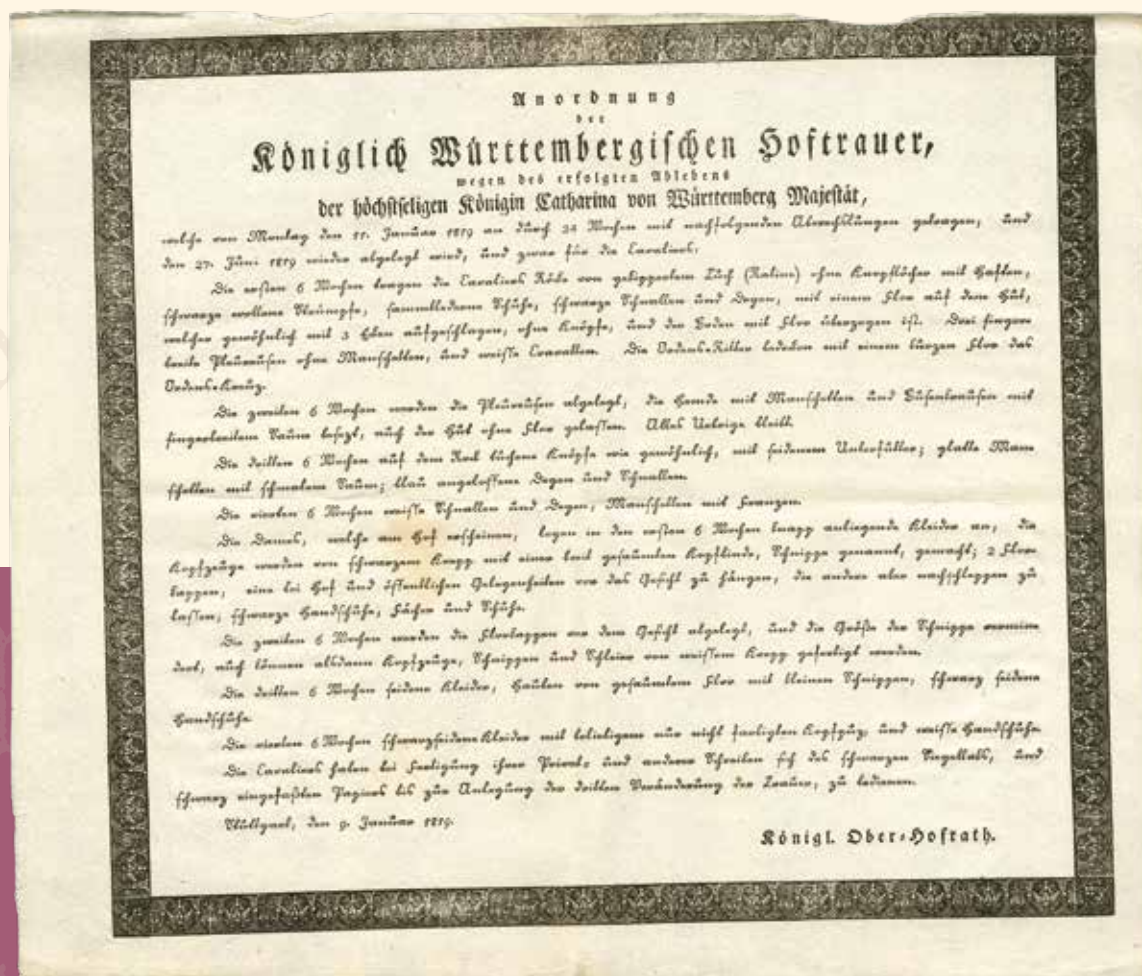 Anordnung
der
Königlich Württembergischen Hoftrauer,
wegen des erfolgten Ablebens
der höchstseligen Königin Catharina von Württemberg Majestät,
welche von Montag den 11. Januar 1819 an durch 24 Wochen mit nachfolgenden Abwechslungen getragen, und
den 27. Juni 1819 wieder abgelegt wird, und zwar für die Cavaliers:
Die ersten 6 Wochen tragen die Cavaliers Röke von geköppertem Tuch (Ratine) ohne Knopflöcher mit Haften,
schwarze wollene Strümpfe, sämmtlederne Schuhe, schwarze Schnallen und Degen, mit einem Flor auf dem Hut,
welcher gewöhnlich mit 3 Eken aufgeschlagen, ohne Knöpfe, und der Boden mit Flor überzogen ist. Drei finger
breite Pleureusen ohne Manschetten, und weisse Cravatten. Die Ordens-Ritter bedeken mit einem kurzen Flor das
Ordens-Kreuz.
Die zweiten 6 Wochen werden die Pleureusen abgelegt, die Hemde mit Manschetten und Busenkrausen mit
fingerbreitem Saum besezt, auch der Hut ohne Flor gelassen. Alles Uebrige bleibt.
Die dritten 6 Wochen auf dem Rok tuchene Knöpfe wie gewöhnlich, mit seidenem Unterfutter; glatte Man
schetten mit schmalem Saum; blau angeloffene Degen und Schnallen.
Die vierten 6 Wochen weisse Schnallen und Degen, Manschetten mit Franzen.
Die Dames, welche am Hof erscheinen, legen in den ersten 6 Wochen knapp anliegende Kleider an; die
Kopfzeuge werden von schwarzem Krepp mit einer breit gesäumten Kopfbinde, Schnippe genannt, gemacht; 2 Flor-
kappen, eine bei Hof und öffentlichen Gelegenheiten vor das Gesicht zu hängen, die andere aber nachschleppen zu
lassen; schwarze Handschuhe, Fächer und Schuhe.
Die zweiten 6 Wochen werden die Florkappen vor dem Gesicht abgelegt, und die Größe der Schnippe vermin
dert, auch können alsdann Kopfzeuge, Schnippen und Schleier von weissem Krepp gefertigt werden.
Die dritten 6 Wochen seidene Kleider, Hauben von gesäumtem Flor mit kleinen Schnippen, schwarz seidene
Handschuhe.
Die vierten 6 Wochen schwarzseidene Kleider mit beliebigem nur nicht farbigten Kopfpuz, und weisse Handschuhe.
Die Cavaliers haben bei Fertigung ihrer Privat- und anderer Schreiben sich des schwarzen Siegellaks, und
schwarz eingefaßten Papiers bis zur Anlegung der dritten Veränderung der Trauer, zu bedienen.
Stuttgart, den 9. Januar 1819.
Königl. Ober-Hofrath.